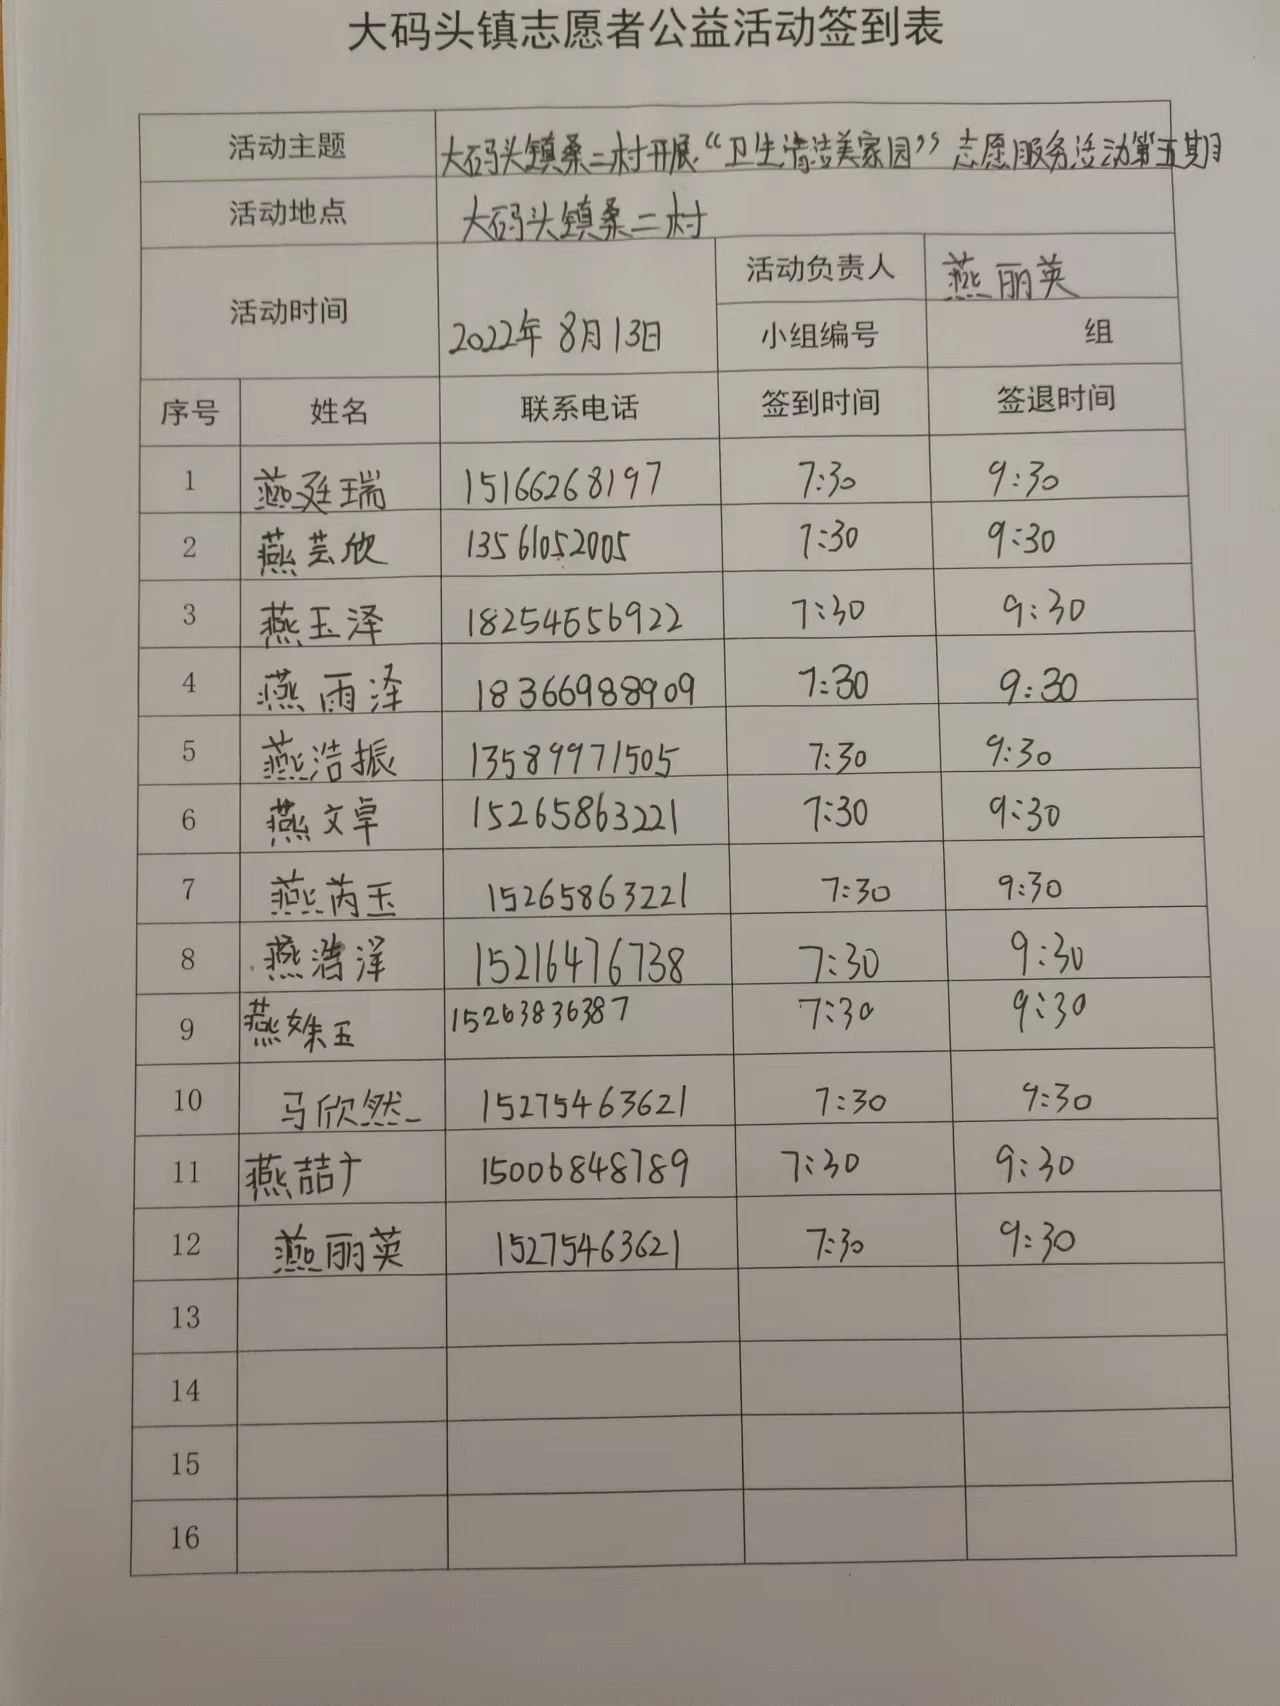 大码头镇志愿者公益活动签到表
活动主题 大码头镇桑二村开展“卫生清洁美家园”志愿服务活动第五期
活动地点 大码头镇桑二村
活动时间 2022年8月13日 活动负责人 燕丽英
小组编号 组
序号 姓名 联系电话 签到时间 签退时间
1 燕廷瑞 15166268197 7:30 9:30
2 燕芸欣 13561052005 7:30 9:30
3 燕玉泽 18254656922 7:30 9:30
4 燕雨泽 18366988909 7:30 9:30
5 燕浩振 13589971505 7:30 9:30
6 燕文卓 15265863221 7:30 9:30
7 燕芮玉 15265863221 7:30 9:30
8 燕浩洋 15216476738 7:30 9:30
9 燕姝玉 15263836387 7:30 9:30
10 马欣然 15275463621 7:30 9:30
11 燕喆 15006848789 7:30 9:30
12 燕丽英 15275463621 7:30 9:30
13
14
15
16